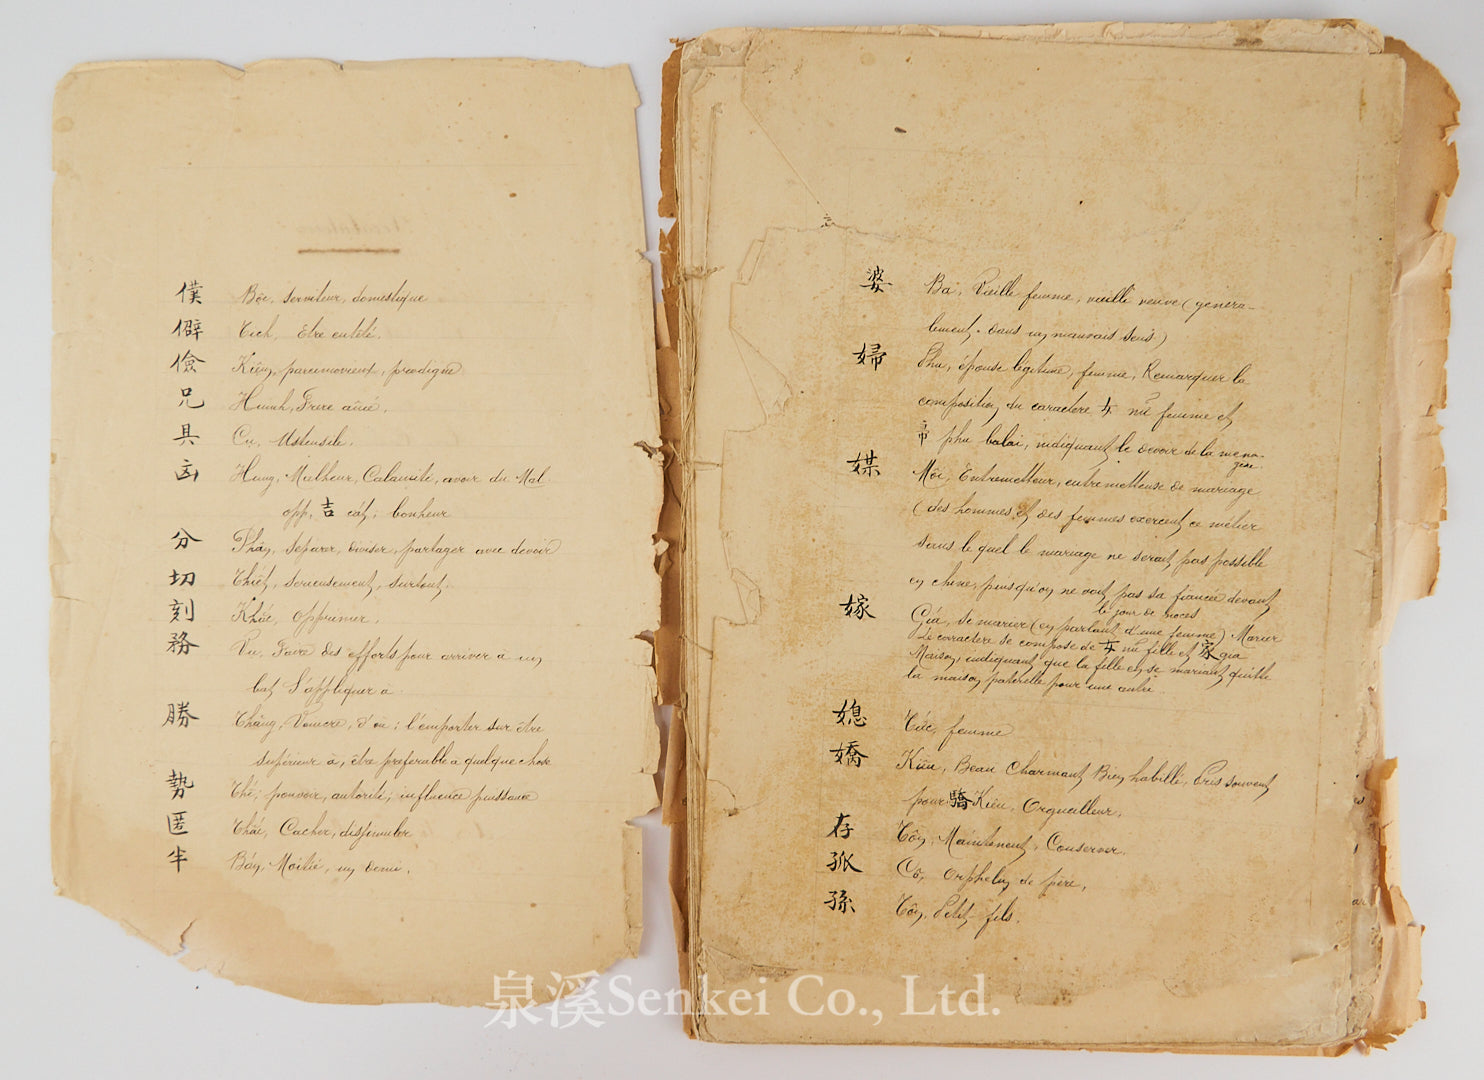 僕 Bộc, serviteur, domestique
僻 Tich, Etre entêté.
儉 Kiệm, parcimonieux, prodigue
兄 Huinh, Frère ainé.
具 Cu, Ustensile.
凶 Hung, Malheur, Calamité, avoir du Mal.
opp. 吉 cát, bonheur
分 Phân, Séparer, diviser, partager avec devoir
切 Thiết, serieusement, surtout.
刻 Khắc, opprimer.
務 Vu, Faire des efforts pour arriver à un
but, S'appliquer à.
勝 Tháng, Vaincre, d'où; l'emporter sur être
supérieur à, être préférable à quelque chose
勢 Thế; pouvoir, autorité; influence puissance
匿 Cacher, dissimuler
半 Bán, Moitié, un demi.
婆 Bà, Vieille femme, vieille veuve (généra-
lement dans un mauvais sens)
婦 Phu, épouse légitime, femme, Remarquer la
composition du caractère 女 nữ femme et
帚 phu balai, indiquant le devoir de la ména-
gère.
媒 Môi, Entremetteur, entremetteuse de mariage
(des hommes et des femmes exercent ce métier
sans le quel le mariage ne serait pas possible
en chine, puisqu'on ne voit pas sa fiancée devant
le jour de noces
嫁 Gía, se marier (en parlant d'une femme) Marier
Le caractère se compose de 女 nữ fille et 家 gia
Maison, indiquant que la fille en se mariant quitte
la maison paternelle pour une autre.
媳 Tức, femme
嬌 Kiều, Beau Charmant Bien habillé, Pris souvent
pour 驕 Kiêu, Orgueilleux.
存 Tồn, Maintenant, Conserver.
孤 Cô, Orphelin de père.
孫 Tôn, Petit fils.
泉溪Senkei Co., Ltd.